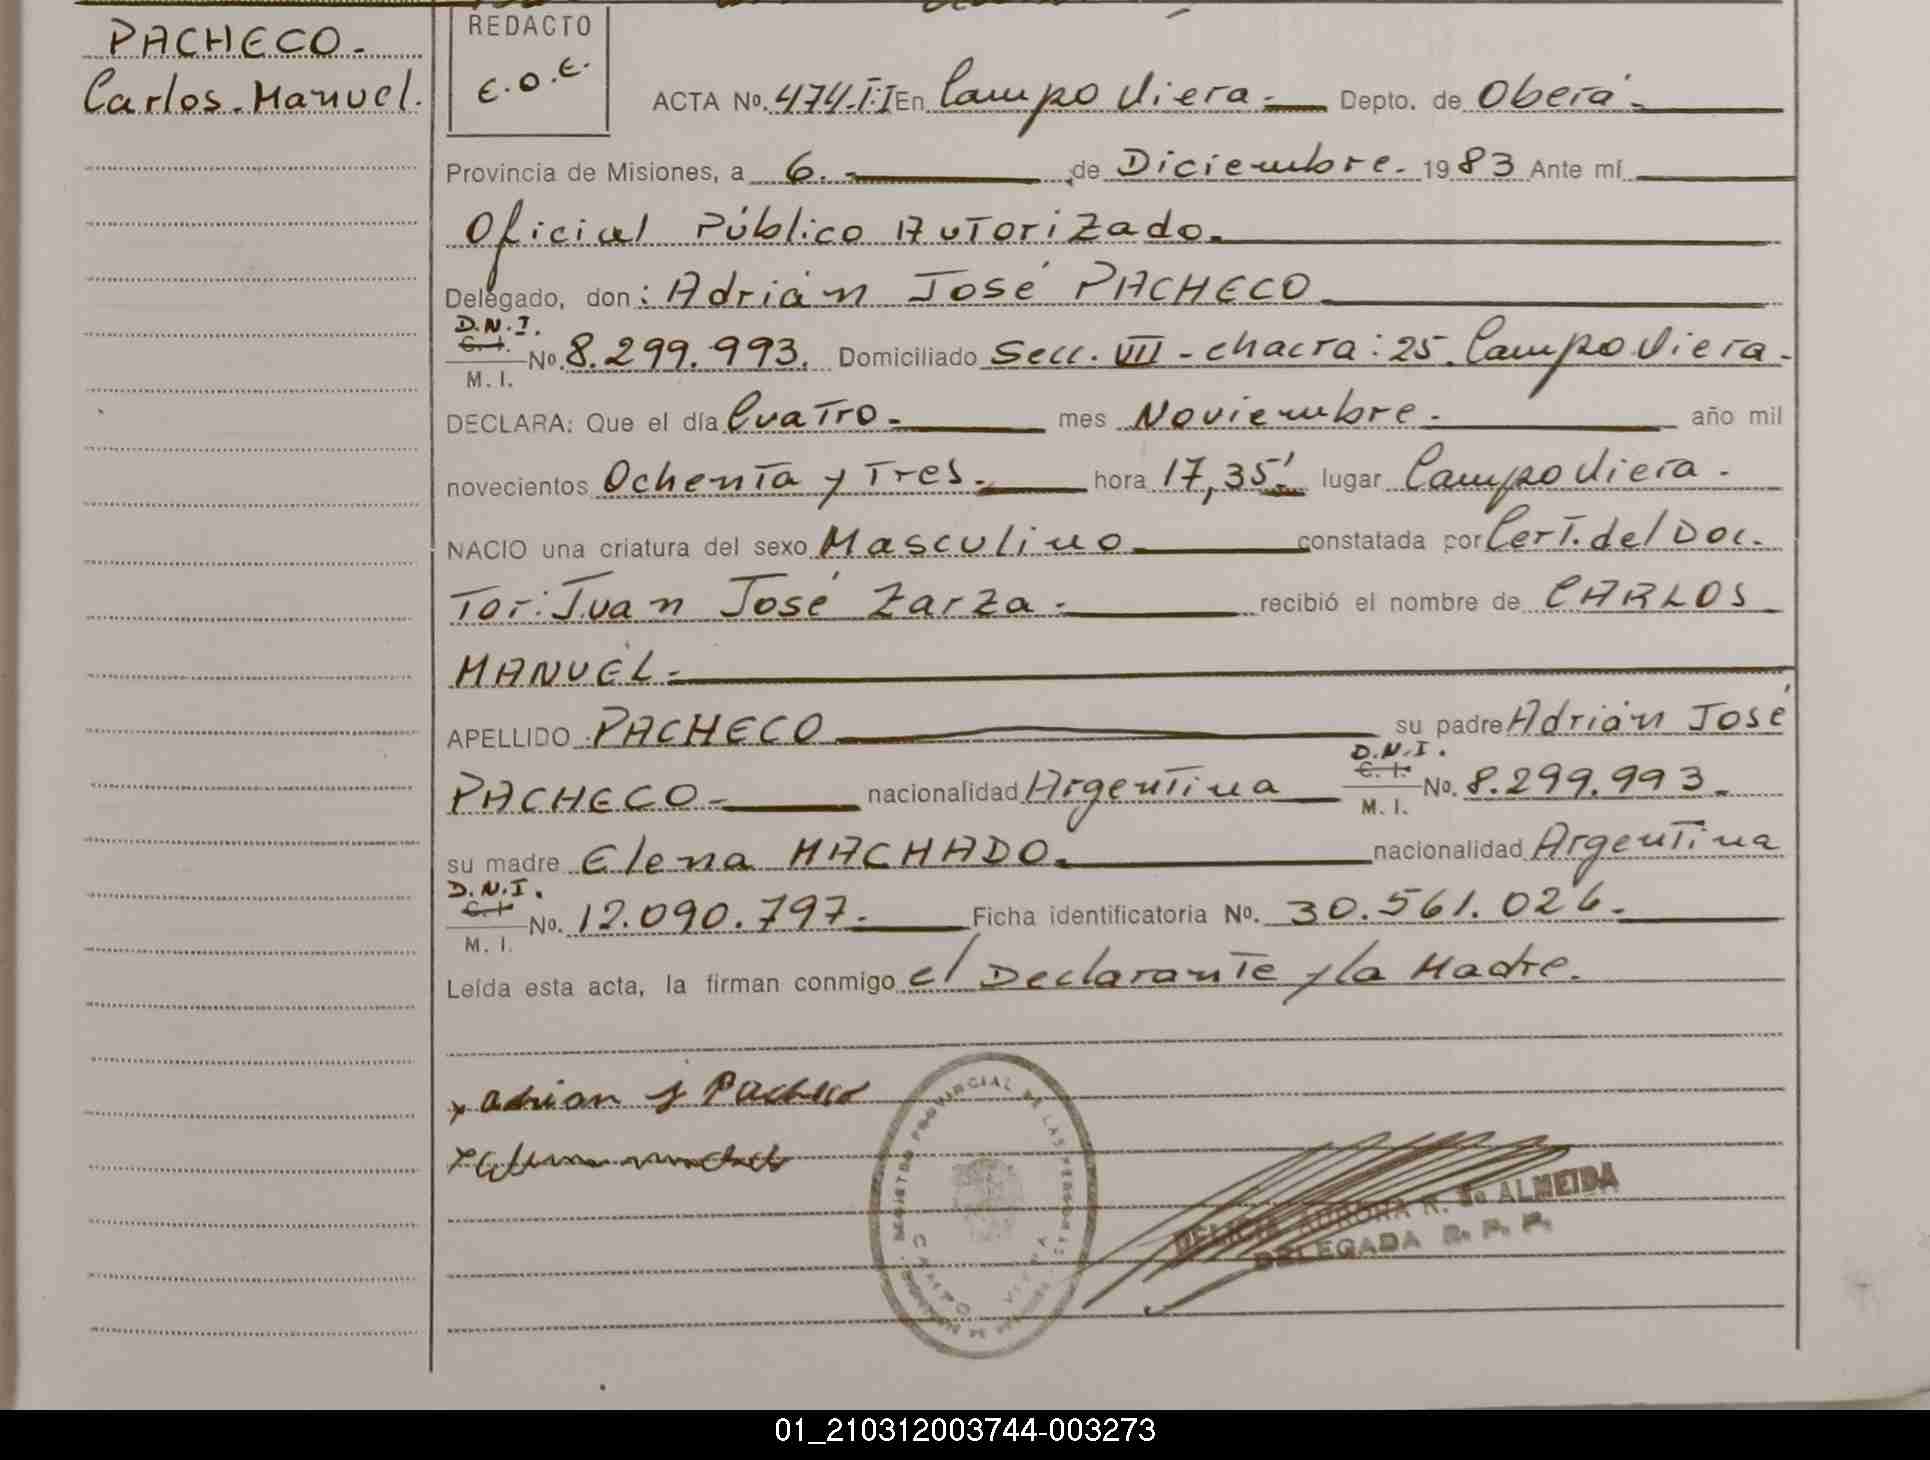 PACHECO.
Carlos. Manuel.
REDACTO
E.O.E.
ACTA No. 474.I:I En Campo Viera.- Depto. de Oberá.-
Provincia de Misiones, a 6.- de Diciembre. 1983 Ante mí
Oficial Público Autorizado.
Delegado, don: Adrián José PACHECO
D.N.I.
C.I.
M.I. No. 8.299.993. Domiciliado Secc. VII - chacra: 25. Campo Viera.
DECLARA: Que el día Cuatro.- mes Noviembre.- año mil
novecientos Ochenta y Tres.- hora 17,35' lugar Campo Viera.
NACIO una criatura del sexo Masculino constatada por Cert. del Doc.
Tor: Juan José Zarza.- recibió el nombre de CARLOS
MANUEL.-
APELLIDO PACHECO su padre Adrián José
PACHECO.- nacionalidad Argentina D.N.I. C.I. M.I. No. 8.299.993.
su madre Elena MACHADO. nacionalidad Argentina
D.N.I.
C.I.
M.I. No. 12.090.797.- Ficha identificatoria No. 30.561.026.-
Leída esta acta, la firman conmigo el Declarante y la Madre.
x adrian J Pacheco
REGISTRO PROVINCIAL DE LAS PERSONAS
CAMPO VIERA
DELICIA AURORA R. de ALMEIDA
DELEGADA R. P. P.
01_210312003744-003273